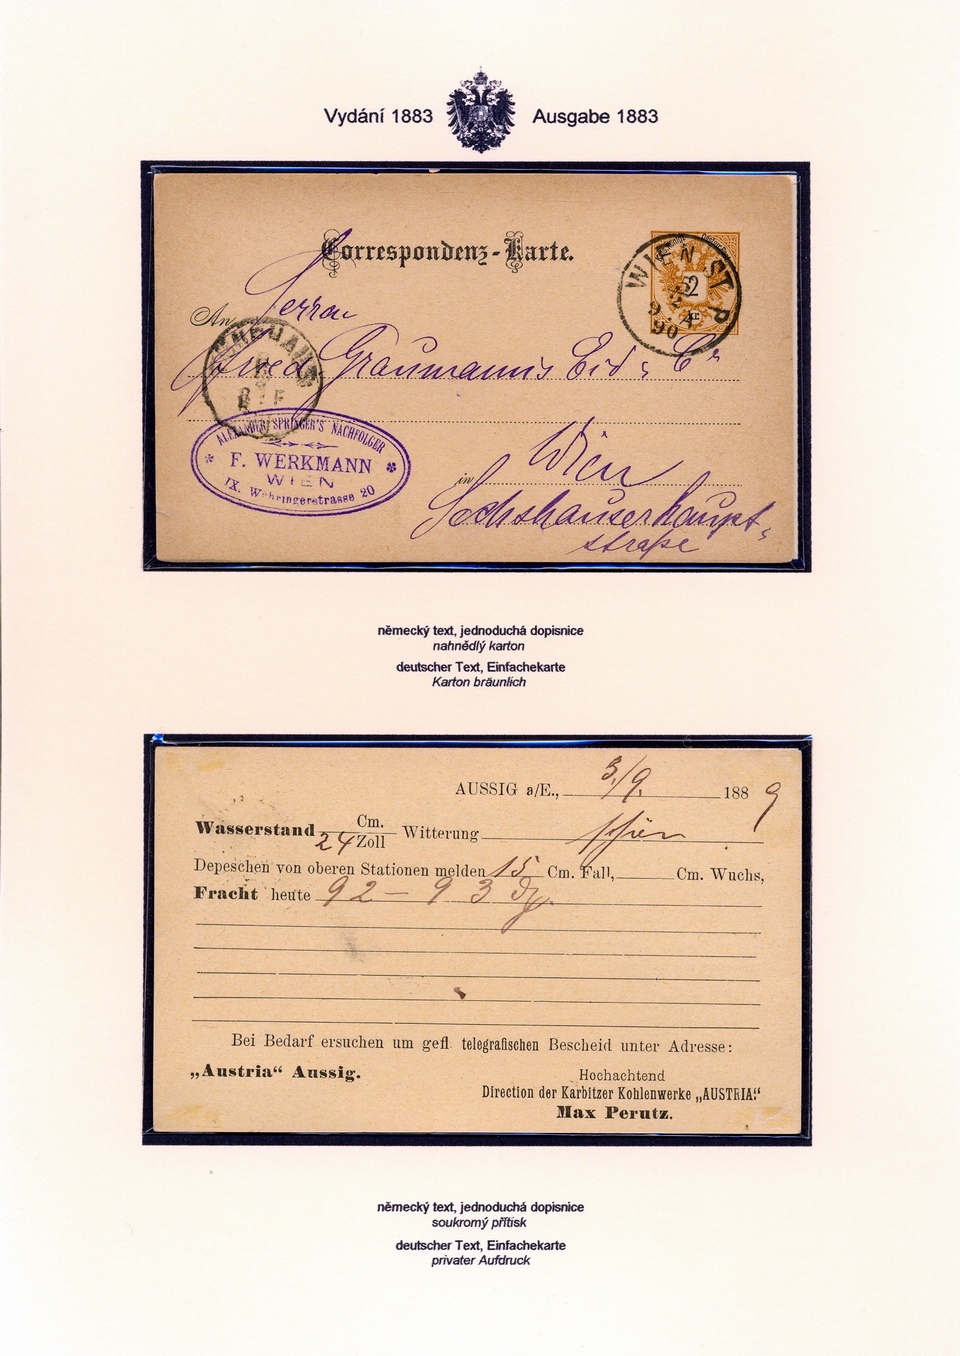 Vydání 1883
Ausgabe 1883
Correspondenz-Karte.
WIEN ST P
2
9 4
90
An Herrn
Graumann's Eid &
ALEXANDER SPRINGER'S NACHFOLGER
F. WERKMANN
WIEN
IX. Währingerstrasse 20
in Wien
Sechshauserhaupt-
straße
německý text, jednoduchá dopisnice
nahnědlý karton
deutscher Text, Einfachekarte
Karton bräunlich
AUSSIG a/E., 3./9. 1889
Wasserstand 24 Cm. Zoll Witterung schön
Depeschen von oberen Stationen melden 15 Cm. Fall, Cm. Wuchs,
Fracht heute 92 – 93
Bei Bedarf ersuchen um gefl. telegrafischen Bescheid unter Adresse:
„Austria“ Aussig.
Hochachtend
Direction der Karbitzer Kohlenwerke „AUSTRIA“
Max Perutz.
německý text, jednoduchá dopisnice
soukromý přítisk
deutscher Text, Einfachekarte
privater Aufdruck